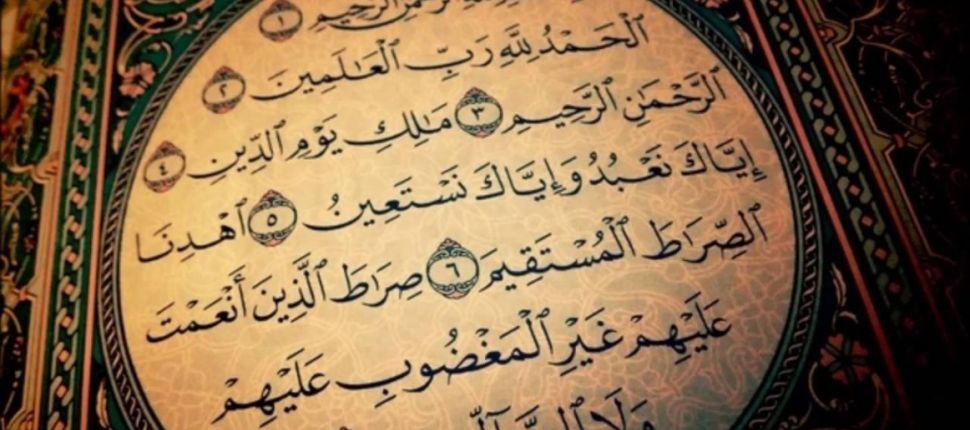 الرَّحْمَٰنِ الرَّحِيمِ ١
ٱلْحَمْدُ لِلَّهِ رَبِّ ٱلْعَٰلَمِينَ ٢
ٱلرَّحْمَٰنِ ٱلرَّحِيمِ ٣ مَٰلِكِ يَوْمِ ٱلدِّينِ ٤
إِيَّاكَ نَعْبُدُ وَإِيَّاكَ نَسْتَعِينُ ٥ ٱهْدِنَا
ٱلصِّرَٰطَ ٱلْمُسْتَقِيمَ ٦ صِرَٰطَ ٱلَّذِينَ أَنْعَمْتَ
عَلَيْهِمْ غَيْرِ ٱلْمَغْضُوبِ عَلَيْهِمْ
وَلَا